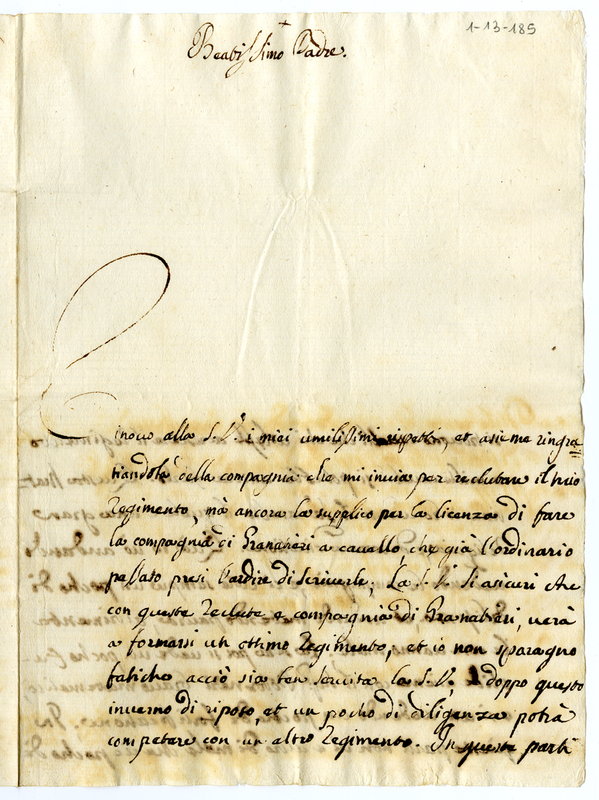 1-13-185
+
Beatissimo Padre.
Rinovo alla S.V. i miei umilissimi rispetti, et asieme ringra=
tiandola della compagnia che mi invia per reclutare il mio
Regimento, mà ancora la supplico per la licenza di fare
la compagnia di Granatieri a cavallo che già l'ordinario
passato presi l'ardire di scriverle; La S.V. si asicuri che
con queste reclute e compagnia di Granatieri, verà
a formarsi un ottimo Regimento, et io non sparagno
fatiche acciò sia ben servita la S.V. doppo questo
inverno di riposo, et un pocho di diligenza potrà
competere con un altro Regimento. In queste parti